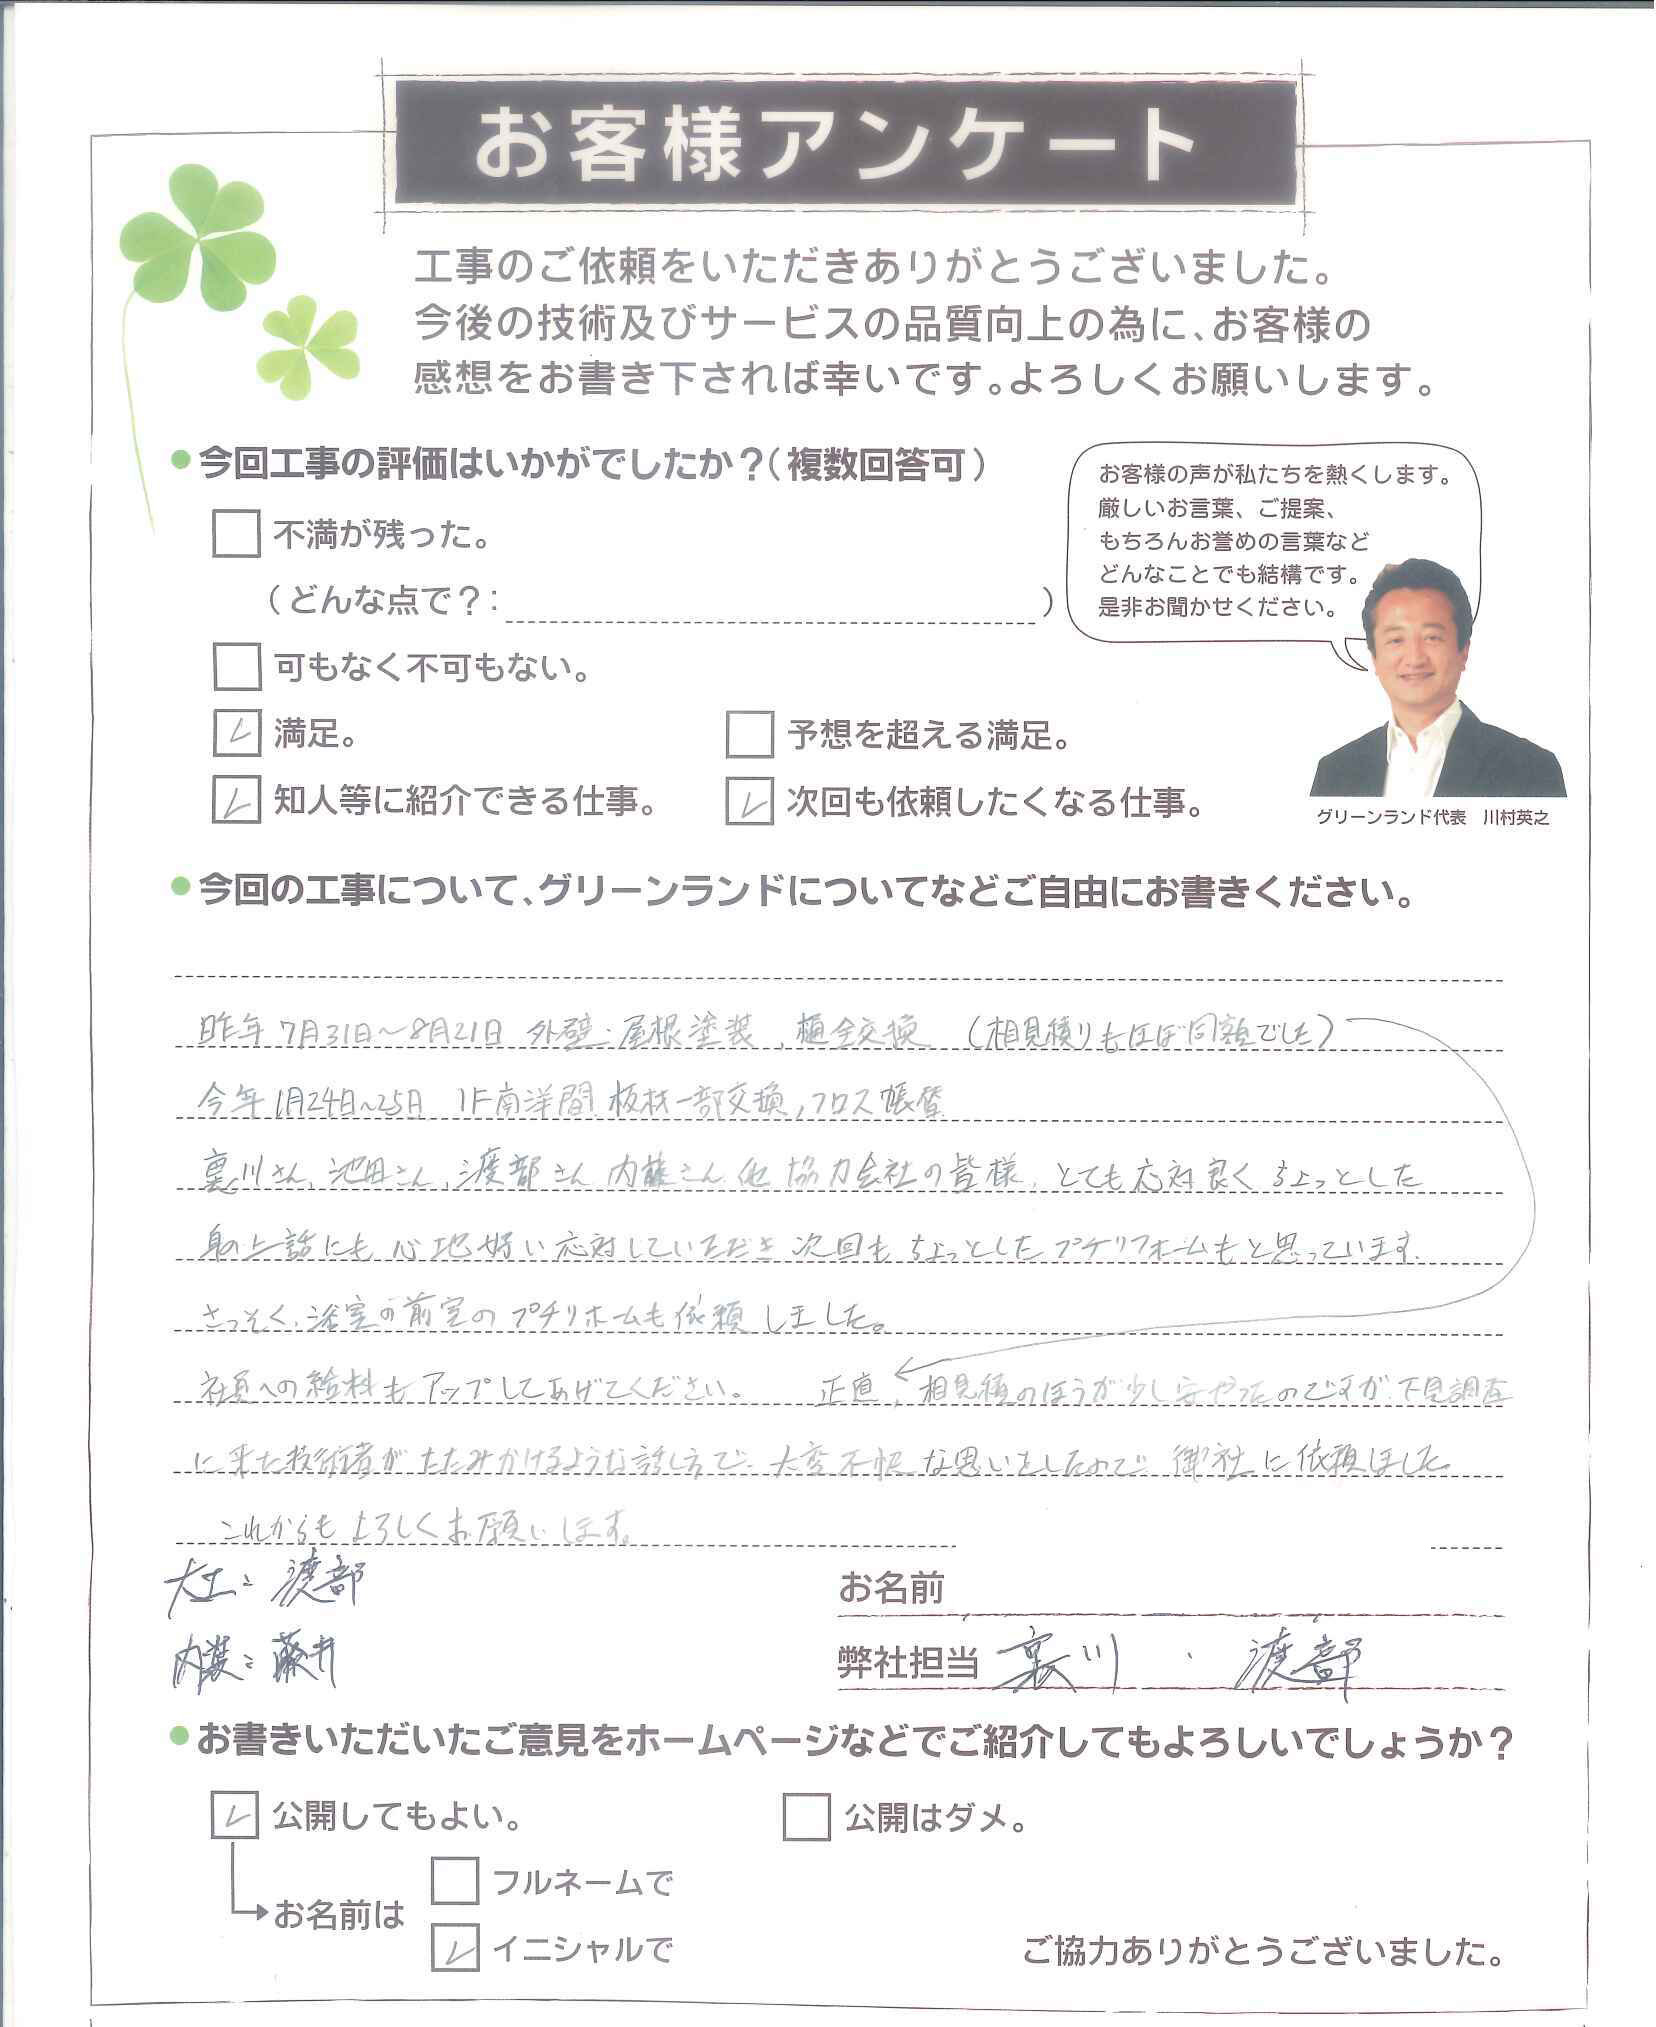 お客様アンケート
工事のご依頼をいただきありがとうございました。
今後の技術及びサービスの品質向上の為に、お客様の
感想をお書き下されば幸いです。よろしくお願いします。
今回工事の評価はいかがでしたか?(複数回答可)
不満が残った。
(どんな点で?: )
可もなく不可もない。
満足。
予想を超える満足。
知人等に紹介できる仕事。
次回も依頼したくなる仕事。
お客様の声が私たちを熱くします。
厳しいお言葉、ご提案、
もちろんお誉めの言葉など
どんなことでも結構です。
是非お聞かせください。
グリーンランド代表 川村英之
今回の工事について、グリーンランドについてなどご自由にお書きください。
昨年7月31日~8月21日 外壁・屋根塗装、樋全交換 (相見積りもほぼ同額でした)
今年1月24日~25日 1F南洋間 板材一部交換,クロス張替
裏川さん、池田さん、渡部さん 内藤さん 他 協力会社の皆様、とても応対良く ちょっとした
身の上話にも 心地好い応対していただき 次回も ちょっとした プチリフォームもと思っています.
さっそく、浴室の前室の プチリホームも依頼しました。
社員への給料も アップしてあげてください。 正直、相見積のほうが少し安やったのですが、下見調査
に来た技術者が たたみかけるような話し方で、大変不快な思いをしたので 御社に依頼しました。
これからも よろしくお願いします。
大工: 渡部
内装: 藤井
お名前
弊社担当 裏川 ・ 渡部
お書きいただいたご意見をホームページなどでご紹介してもよろしいでしょうか?
公開してもよい。
公開はダメ。
お名前は
フルネームで
イニシャルで
ご協力ありがとうございました。